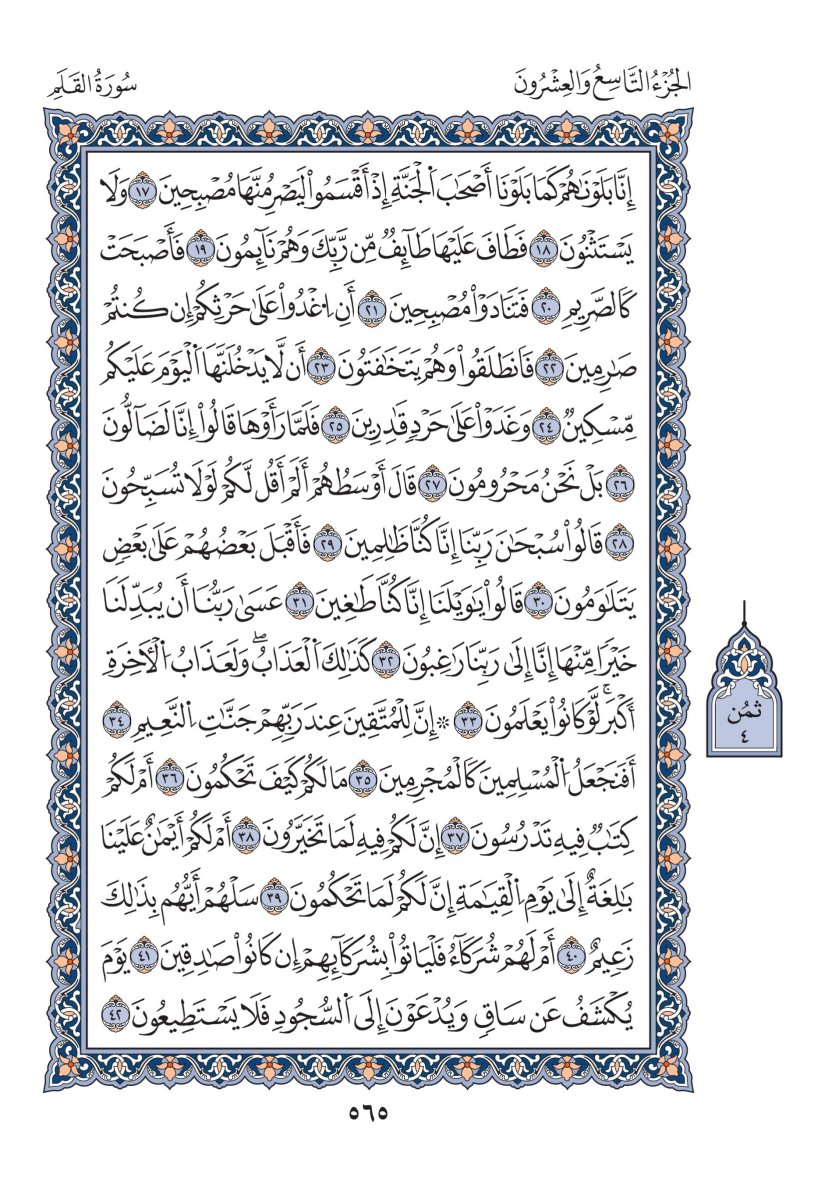 الجُزْءُ التَّاسِعُ وَالعِشْرُونَ
سُورَةُ القَلَمِ
إِنَّا بَلَوْنَٰهُمْ كَمَا بَلَوْنَا أَصْحَٰبَ اَ۬لْجَنَّةِ إِذْ أَقْسَمُواْ لَيَصْرِمُنَّهَا مُصْبِحِينَ ١٧ وَلَا
يَسْتَثْنُونَ ١٨ فَطَافَ عَلَيْهَا طَآئِفٌ مِّن رَّبِّكَ وَهُمْ نَآئِمُونَ ١٩ فَأَصْبَحَتْ
كَالصَّرِيمِ ٢٠ فَتَنَادَوْاْ مُصْبِحِينَ ٢١ أَنِ اِ۟غْدُواْ عَلَىٰ حَرْثِكُمْ إِن كُنتُمْ
صَٰرِمِينَ ٢٢ فَانطَلَقُواْ وَهُمْ يَتَخَٰفَتُونَ ٢٣ أَن لَّا يَدْخُلَنَّهَا اَ۬لْيَوْمَ عَلَيْكُم
مِّسْكِينٌ ٢٤ وَغَدَوْاْ عَلَىٰ حَرْدٍ قَٰدِرِينَ ٢٥ فَلَمَّا رَأَوْهَا قَالُواْ إِنَّا لَضَآلُّونَ
٢٦ بَلْ نَحْنُ مَحْرُومُونَ ٢٧ قَالَ أَوْسَطُهُمْ أَلَمْ أَقُل لَّكُمْ لَوْلَا تُسَبِّحُونَ
٢٨ قَالُواْ سُبْحَٰنَ رَبِّنَا إِنَّا كُنَّا ظَٰلِمِينَ ٢٩ فَأَقْبَلَ بَعْضُهُمْ عَلَىٰ بَعْضٍ
يَتَلَٰوَمُونَ ٣٠ قَالُواْ يَٰوَيْلَنَا إِنَّا كُنَّا طَٰغِينَ ٣١ عَسَىٰ رَبُّنَا أَن يُبَدِّلَنَا
خَيْرًا مِّنْهَا إِنَّا إِلَىٰ رَبِّنَا رَٰغِبُونَ ٣٢ كَذَٰلِكَ اَ۬لْعَذَابُۖ وَلَعَذَابُ اُ۬لْأٓخِرَةِ
أَكْبَرُۚ لَوْ كَانُواْ يَعْلَمُونَ ٣٣ ۞ إِنَّ لِلْمُتَّقِينَ عِندَ رَبِّهِمْ جَنَّٰتِ اِ۬لنَّعِيمِ ٣٤
أَفَنَجْعَلُ اُ۬لْمُسْلِمِينَ كَالْمُجْرِمِينَ ٣٥ مَا لَكُمْ كَيْفَ تَحْكُمُونَ ٣٦ أَمْ لَكُمْ
كِتَٰبٌ فِيهِ تَدْرُسُونَ ٣٧ إِنَّ لَكُمْ فِيهِ لَمَا تَخَيَّرُونَ ٣٨ أَمْ لَكُمْ أَيْمَٰنٌ عَلَيْنَا
بَٰلِغَةٌ إِلَىٰ يَوْمِ اِ۬لْقِيَٰمَةِ إِنَّ لَكُمْ لَمَا تَحْكُمُونَ ٣٩ سَلْهُمْ أَيُّهُم بِذَٰلِكَ
زَعِيمٌ ٤٠ أَمْ لَهُمْ شُرَكَآءُ فَلْيَاتُواْ بِشُرَكَآئِهِمْ إِن كَانُواْ صَٰدِقِينَ ٤١ يَوْمَ
يُكْشَفُ عَن سَاقٍ وَيُدْعَوْنَ إِلَى اَ۬لسُّجُودِ فَلَا يَسْتَطِيعُونَ ٤٢
ثُمُن
٤
٥٦٥